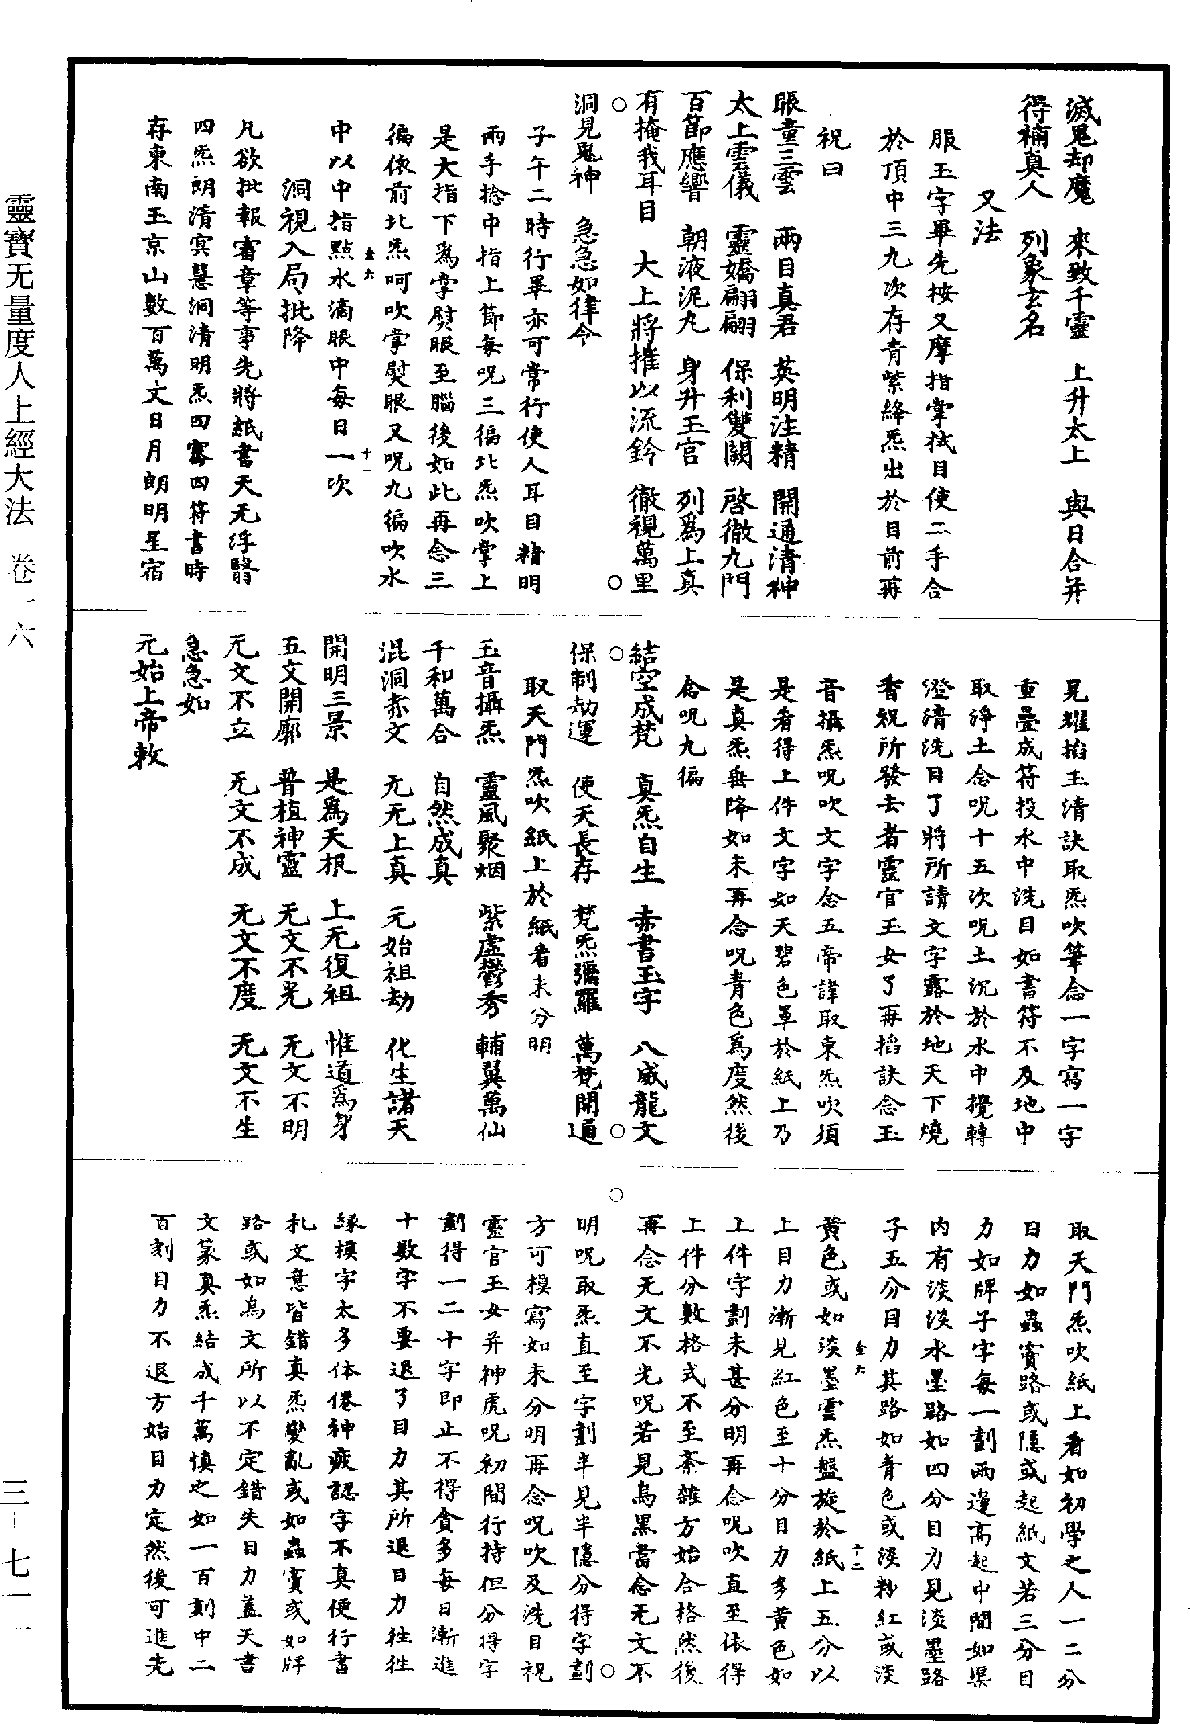 滅鬼却魔　來致千靈　上升太上　與日合并
得補真人　列象玄名
又法
服玉字畢先按叉摩指掌拭目使二手合
於頂中三九次存青紫絳炁出於目前再
祝曰
眼童三雲　兩目真君　英明注精　開通清神
太上雲儀　靈嬌翩翩　保利雙闕　啓徹九門
百節應響　朝液泥丸　身升玉宮　列爲上真
有掩我耳目　大上將摧以流鈴　徹視萬里
洞見鬼神　急急如律令
子午二時行畢亦可常行使人耳目精明
兩手捻中指上節每呪三徧北炁吹掌上
是大指下爲掌熨眼至腦後如此再念三
徧依前北炁呵吹掌熨眼又呪九徧吹水
中以中指點水滴眼中每日一次
洞視入局批降
凡欲批報審章等事先將紙書天无浮翳
四炁朗清冥慧洞清明炁四霱四符書時
存東南玉京山數百萬文日月朗明星宿
晃耀掐玉清訣取炁吹筆念一字寫一字
重疊成符投水中洗目如書符不及地中
取淨土念呪十五次呪土沉於水中攪轉
澄清洗目了將所請文字露於地天下燒
香祝所發去者靈官玉女了再掐訣念玉
音攝炁呪吹文字念五帝諱取東炁吹須
是看得上件文字如天碧色罩於紙上乃
是真炁垂降如未再念呪青色爲度然後
念呪九徧
結空成梵　真炁自生　赤書玉字　八威龍文
保制劫運　使天長存　梵炁彌羅　萬梵開通
取天門炁吹紙上於紙者未分明
玉音攝炁　靈風聚烟　紫虛鬱秀　輔翼萬仙
千和萬合　自然成真
混洞赤文　无无上真　元始祖劫　化生諸天
開明三景　是爲天根　上无復祖　惟道爲身
五文開廓　普植神靈　无文不光　无文不明
无文不立　无文不成　无文不度　无文不生
急急如
元始上帝敕
取天門炁吹紙上看如初學之人一二分
目力如蟲竇路或隱或起紙文若三分目
力如牌子字每一劃兩邊高起中間如渠
內有淡淡水墨路如四分目力見淡墨路
子五分目力其路如青色或淡粉紅或淡
黃色或如淡墨雲炁盤旋於紙上五分以
上目力漸見紅色至十分目力多黃色如
上件字劃未甚分明再念呪吹直至依得
上件分數格式不至紊雜方始合格然後
再念无文不光呪若見烏黑當念无文不
明呪取炁直至字劃半見半隱分得字劃
方可模寫如未分明再念呪吹及洗目祝
靈官玉女并神虎呪初間行持但分得字
劃得一二十字即止不得貪多每日漸進
十數字不要退了目力其所退目力往往
緣模字太多体倦神疲認字不真便行書
札文意皆錯真炁變亂或如蟲竇或如牌
路或如鳥文所以不定錯失目力蓋天書
文篆真炁結成千萬慎之如一百刻中二
百刻目力不退方始目力定然後可進先
靈寶无量度人上經大法　卷一六
三－七一一